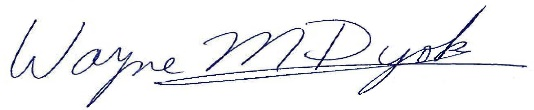 Wayne M Dyok